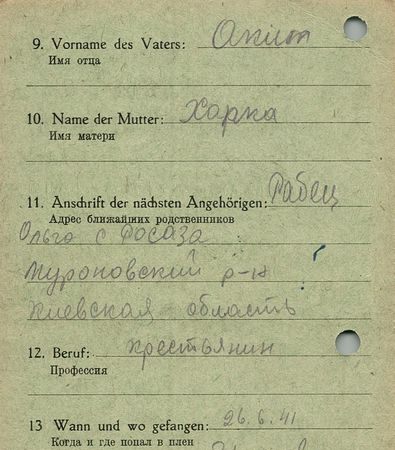 9. Vorname des Vaters: Аким
Имя отца
10. Name der Mutter: Харка
Имя матери
11. Anschrift der nächsten Angehörigen: Рабец
Адрес ближайших родственников
Ольга с
р-н
Киевская область
12. Beruf: крестьянин
Профессия
13 Wann und wo gefangen: 26.6.41
Когда и где попал в плен